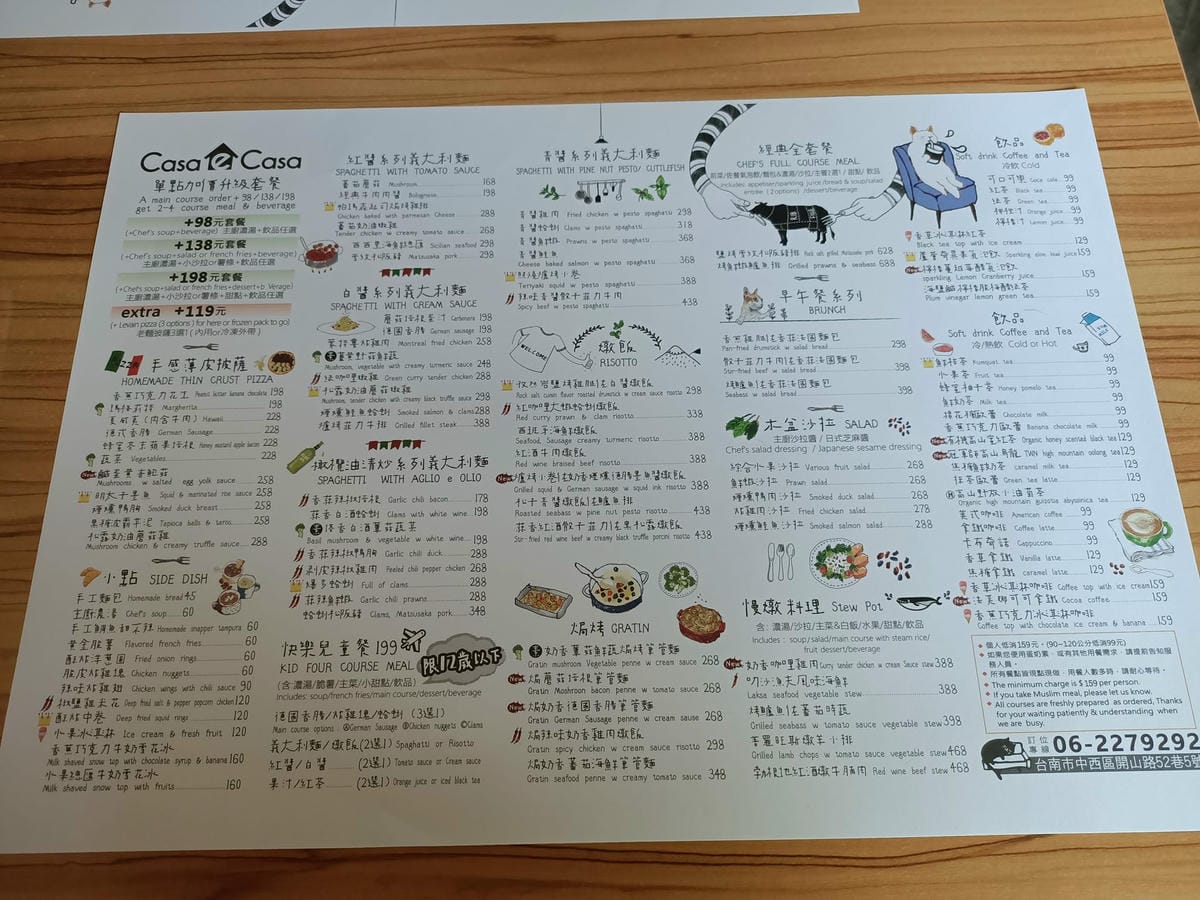 Casa e Casa
單點加價升級套餐
A main course order + 98 / 138 / 198
get 2-4 course meal & beverage
+98元套餐
(+Chef's soup+beverage) 主廚濃湯+飲品任選
+138元套餐
(+Chef's soup+salad or french fries+beverage)
主廚濃湯+小沙拉or薯條+飲品任選
+198元套餐
(+Chef's soup+salad or french fries+dessert+b Verage)
主廚濃湯+小沙拉or薯條+甜點+飲品任選
extra +119元
(+ Levain pizza (3 options) for here or frozen pack to go)
老麵披薩3選1 ( 內用or冷凍外帶 )
手感薄皮披薩
HOMEMADE THIN CRUST PIZZA
香蕉巧克力花生 Peanut butter banana chocolate 198
瑪格莉特 Margherita 198
夏威夷 (內含牛肉) Hawaii 198
德式香腸 German Sausage 228
Honey mustard apple bacon 228
蔬菜 Vegetables 228
鹹蛋黃野菇菇
Mushrooms w salted egg yolk sauce 258
明太子墨魚 Squid & marinated roe sauce 258
煙燻鴨胸 Smoked duck breast 258
黑糖波霸芋泥 Tapioca balls & taros 258
松露奶油蘑菇雞
Mushroom chicken & creamy truffle sauce 288
小點 SIDE DISH
手工麵包 Homemade bread 45
主廚濃湯 Chef's soup 60
Homemade snapper tampura 60
黃金脆薯 Flavored french fries 60
酥炸洋蔥圈 Fried onion rings 60
脆皮炸雞塊 Chicken nuggets 60
辣味炸雞翅 Chicken wings with chili sauce 90
椒鹽雞米花 Deep fried salt & pepper popcorn chicken 120
酥炸中卷 Deep fried squid rings 120
小果冰淇淋 Ice cream & fresh fruit 120
香蕉巧克力牛奶雪花冰
Milk shaved snow top with chocolate syrup & banana 160
水果總匯牛奶雪花冰
Milk shaved snow top with fruits 160
紅醬系列義大利麵
SPAGHETTI WITH TOMATO SAUCE
蕃茄蘑菇 Mushroom 168
經典牛肉肉醬 Bolognese 198
帕瑪森起司焗烤雞排
Chicken baked with parmesan Cheese 288
蕃茄奶油嫩雞
Tender chicken w creamy tomato sauce 268
西西里海鮮總匯 Sicilian seafood 298
Matsusaka pork 298
白醬系列義大利麵
SPAGHETTI WITH CREAM SAUCE
Carbonara 198
德國香腸 German sausage 198
Montreal fried chicken 258
薑黃野菇鮮蔬
Mushroom, vegetable with creamy turmeric sauce 248
綠咖哩嫩雞 Green curry tender chicken 288
松露奶油蘑菇雞
Mushroom, tender chicken with creamy black truffle sauce 298
煙燻鮭魚蛤蜊 Smoked salmon & clams 288
爐烤菲力牛排 Grilled fillet steak 388
橄欖油清炒系列義大利麵
SPAGHETTI WITH AGLIO e OLIO
Garlic chili bacon 178
蒜香白酒蛤蜊 Clams with white wine 198
Basil mushroom & vegetable w white wine 198
香蒜辣椒鴨胸 Garlic chili duck 288
剝皮辣椒雞肉 Peeled chili pepper chicken 268
爆多蛤蜊 Full of clams 288
蒜辣鮮蝦 Garlic chili prawns 288
蛤蜊松阪豬 Clams, Matsusaka pork 348
快樂兒童餐 199
KID FOUR COURSE MEAL
限12歲以下
(含:濃湯/脆薯/主菜/小甜點/飲品)
Includes: soup/french fries/main course/dessert/beverage
德國香腸/炸雞塊/蛤蜊 (3選1)
Main course options : ⒶGerman Sausage ⒷChicken nuggets ⒸClams
義大利麵/燉飯(2選1) Spaghatti or Risotto
紅醬/白醬 (2選1) Tomato sauce or Cream sauce
果汁/紅茶 (2選1) Orange juice or iced black tea
青醬系列義大利麵
SPAGHETTI WITH PINE NUT PESTO/ CUTTLEFISH
青醬雞肉 Fried chicken w pesto spaghatti 298
青醬蛤蜊 Clams w pesto spaghatti 318
青醬鮮蝦 Prawns w pesto spaghatti 368
青醬鮭魚
Cheese baked salmon w pesto spaghatti 368
照燒爐烤小卷
Teriyaki squid w pesto spaghatti 368
辣味青醬骰子菲力牛肉
Spicy beef w pesto spaghatti 438
WELCOME
燉飯
RISOTTO
玫瑰岩鹽烤雞腿佐白醬燉飯
Rock salt cumin flavor roasted drumstick w cream risotto 298
紅咖哩大蝦蛤蜊燉飯
Red curry prawn & clam risotto 388
西班牙海鮮燉飯
Seafood, Sausage creamy turmeric risotto 388
紅酒牛肉燉飯
Red wine braised beef risotto 388
Grilled squid & German sausage w squid ink risotto 388
松子青醬燉飯佐鱸魚排
Roasted seabass w pine nut pesto risotto 438
蒜香紅酒骰子菲力佐黑松露燉飯
Stir-fried red wine beef w creamy black truffle porcini risotto 438
焗烤 GRATIN
奶香薑菇鮮蔬焗烤筆管麵
Gratin mushroom Vegetable penne w cream sauce 268
焗蘑菇培根筆管麵
Gratin Moshroon bacon penne w tomato sauce 268
焗奶香德國香腸筆管麵
Gratin German Sausage penne w cream sause 268
焗辣味奶香雞肉燉飯
Gratin spicy chicken w cream sauce risotto 298
奶香蕃茄海鮮筆管麵
Gratin seafood penne w creamy tomato sauce 348
經典全套餐
CHEF'S FULL COURSE MEAL
前菜/佐餐氣泡飲/麵包&濃湯/沙拉/主餐2選1 / 甜點/ 飲品
Includes: appetiser/sparking juice/bread & soup/salad
entrée (2options) /dessert/beverage
Rock salt grilled Matsusaka pork 628
Grilled prawns & seabass 688
早午餐系列
BRUNCH
香煎雞腿佐香蒜法國麵包
Pan-fried drumstick w salad bread 298
骰子菲力牛肉佐香蒜法國麵包
Stir-fried beef w salad bread 398
烤鱸魚佐香蒜法國麵包
Seabass w salad bread 398
木盆沙拉 SALAD
主廚沙拉醬 / 日式芝麻醬
Chef's salad dressing / Japanese sesame dressing
綜合水果沙拉 Various fruit salad 268
鮮蝦沙拉 Prawn salad 268
煙燻鴨肉沙拉 Smoked duck salad 268
炸雞肉沙拉 Fried chicken salad 278
煙燻鮭魚沙拉 Smoked salmon salad 288
慢燉料理 Stew Pot
含:濃湯/沙拉/主菜&白飯/水果/甜點/飲品
Includes : soup/salad/main course with steam rice/
fruit dessert/beverage
奶香咖哩雞肉 Curry tender chicken w cream Sauce stew 388
叻沙漁夫風味海鮮
Laksa seafood vegetable stew 388
烤鱸魚佐蕃茄時蔬
Grilled seabass w tomato sauce vegetable stew 398
普羅旺斯燉羊小排
Grilled lamb chops w tomato sauce vegetable stew 468
紅酒燉牛腩肉 Red wine beef stew 468
飲品
Soft drink Coffee and Tea
冷飲 Cold
可口可樂 Coca cola 99
紅茶 Black tea 99
綠茶 Green tea 99
柳橙汁 Orange juice 99
檸檬汁 Lemon juice 99
香草冰淇淋紅茶
Black tea top with ice cream 129
Sparkling aloe kiwi juice 159
Sparkling Lemon Cranberry juice 159
Plum vinegar lemon green tea 159
飲品
Soft drink Coffee and Tea
冷/熱飲 Cold or Hot
鮮桔茶 Kumquat tea 99
水果茶 Fruit tea 99
蜂蜜柚子茶 Honey pomelo tea 99
鮮奶茶 Milk tea 99
棉花糖歐蕾 Chocolate milk 99
香蕉巧克力歐蕾 Banana chocolate milk 99
有機高山蜜紅茶 Organic honey scented black tea 129
冠軍師高山烏龍 TWN high mountain oolong tea 129
焦糖鮮奶茶 caramel milk tea 129
抹茶歐蕾 Green tea latte 129
高山野放小油菊茶
Organic high mountain guizotia abyssinica tea 129
美式咖啡 American coffee 99
拿鐵咖啡 Coffee latte 99
卡布奇諾 Cappuccino 99
香草拿鐵 Vanilla latte 129
焦糖拿鐵 caramel latte 129
香草冰淇淋咖啡 Coffee top with ice cream 159
法芙娜可可拿鐵 Cocoa coffee 159
香蕉巧克力冰淇淋咖啡
Coffee top with chocolate ice cream & banana 159
個人低消159元。(90~120公分低消99元)
如果您使用蛋奶素, 或有其他用餐需求, 請提前告知服
務人員。
所有餐點皆現點現做, 用餐人數多時, 請耐心等待。
The minimum charge is $ 159 per person.
If you take Muslim meal, please let us know.
All courses are freshly prepared as ordered, Thanks
for your waiting patiently & understanding when
we are busy.
訂位專線 06-2279292
台南市中西區開山路52巷5號